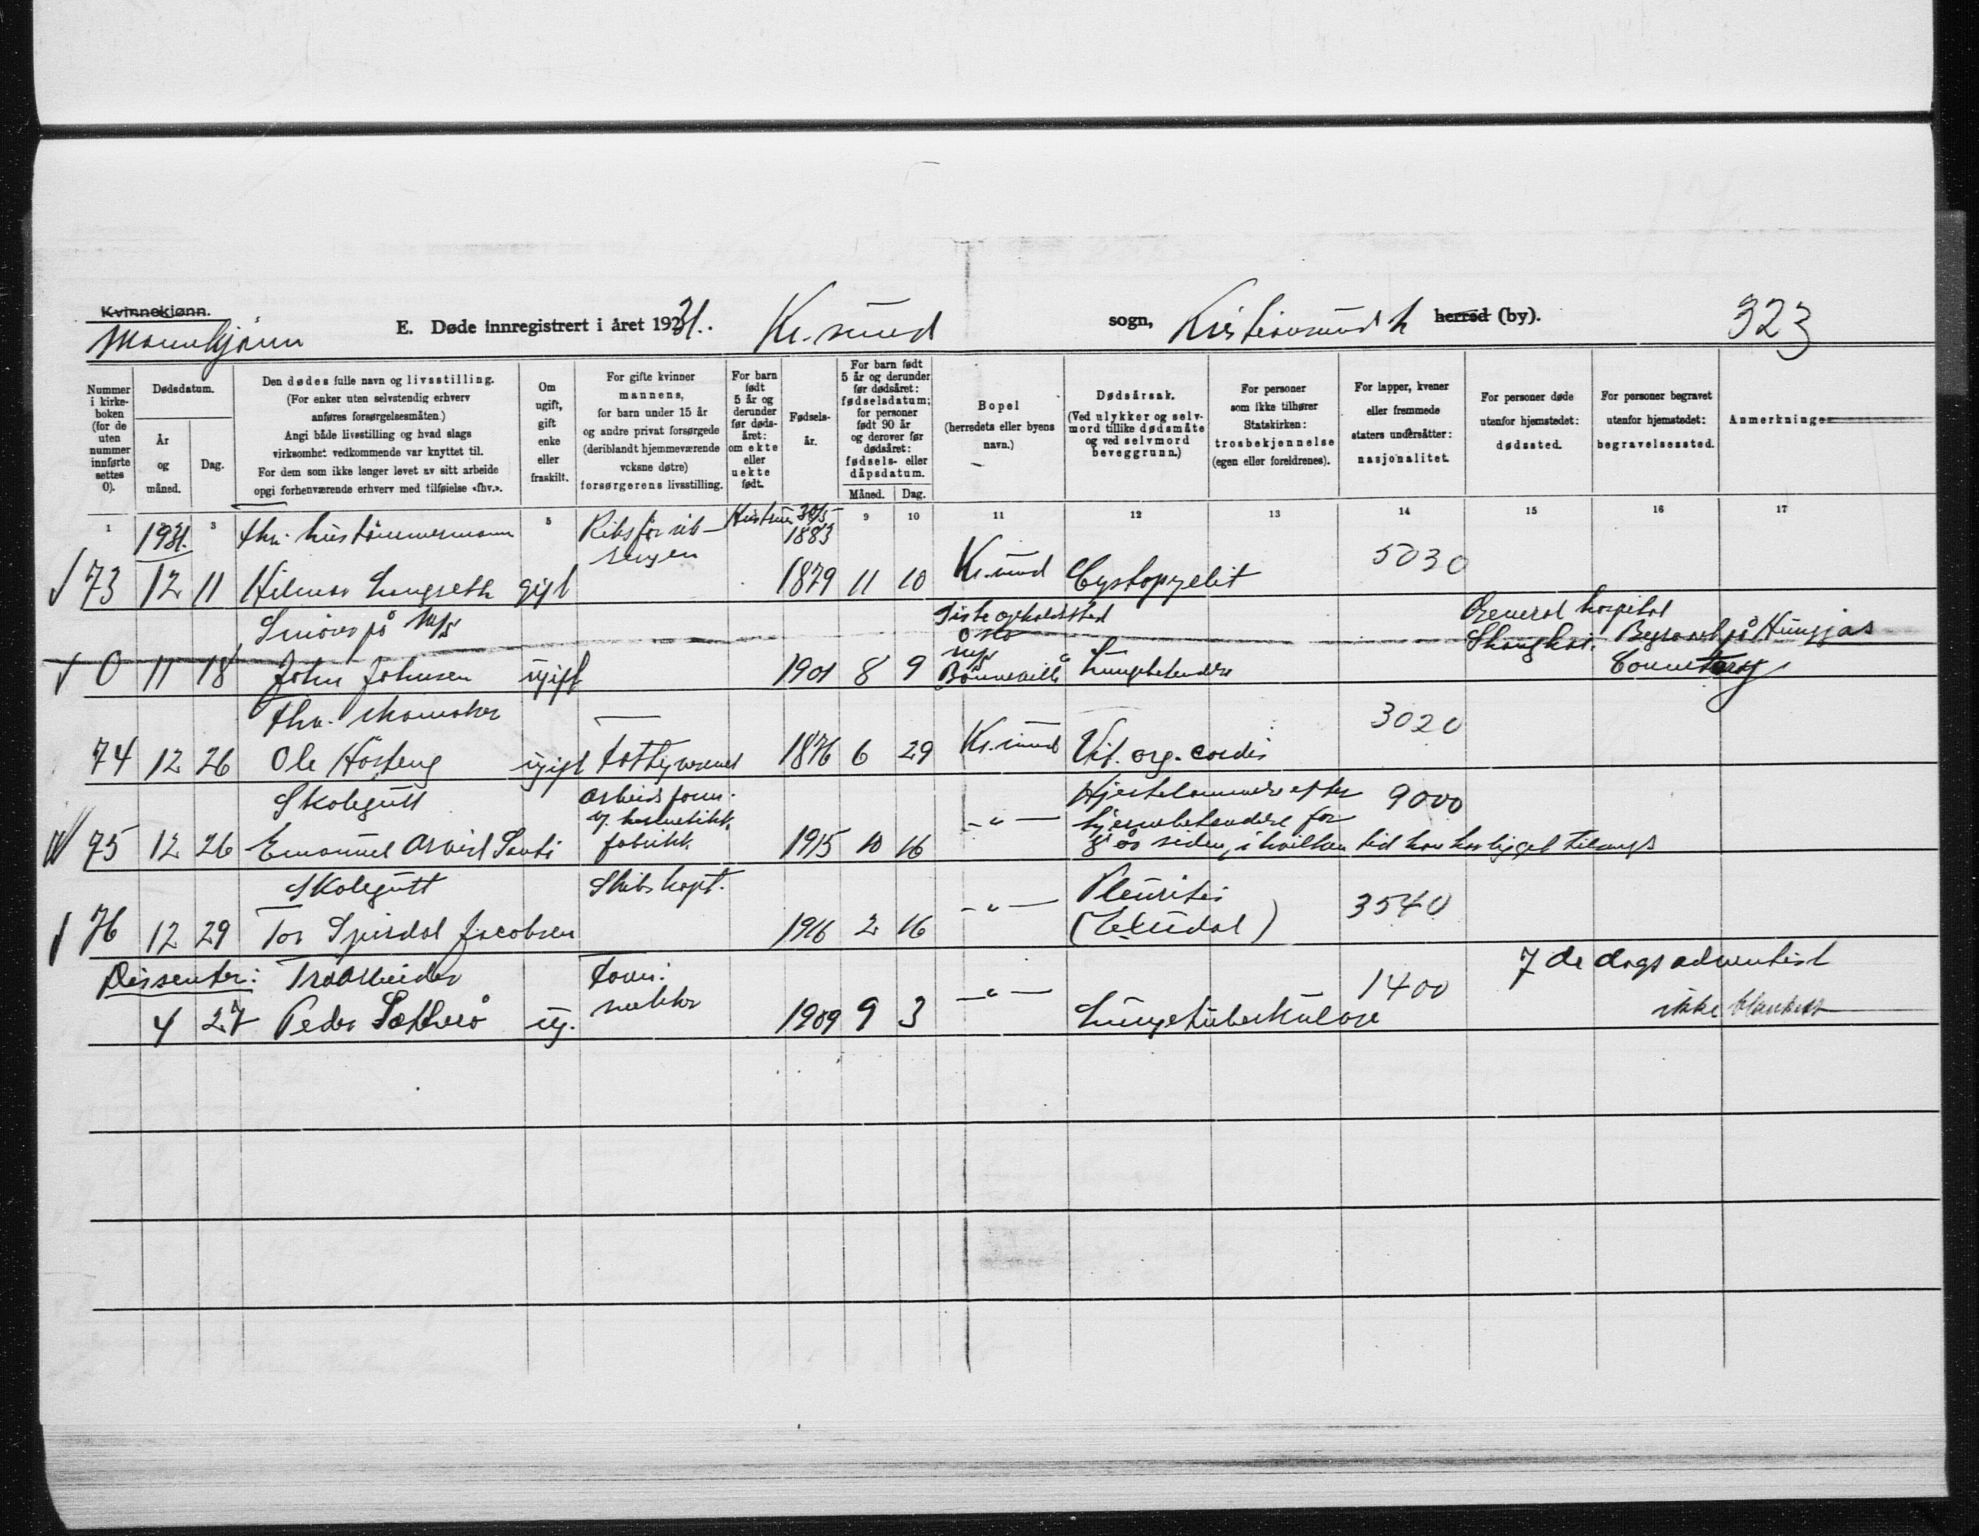 Kvinnekjønn.
Mannkjønn
E. Døde innregistrert i året 1931. Kr.sund sogn, Kristiansund N herred (by). 323
Nummer i kirkeboken (for de uten nummer innførte settes 0).
Dødsdatum.
År og måned.
Dag.
Den dødes fulle navn og livsstilling.
(For enker uten selvstendig erhverv anføres forsørgelsesmåten.)
Angi både livsstilling og hvad slags virksomhet vedkommende var knyttet til.
For dem som ikke lenger levet av sitt arbeide opgi forhenværende erhverv med tilføielse «fhv.».
Om ugift, gift enke eller fraskilt.
For gifte kvinner mannens, for barn under 15 år og andre privat forsørgede (deriblandt hjemmeværende voksne døtre) forsørgerens livsstilling.
For barn født 5 år og derunder før dødsåret: om ekte eller uekte født.
Fødselsår.
For barn født 5 år og derunder før dødsåret: fødselsdatum; for personer født 90 år og derover før dødsåret: fødsels- eller dåpsdatum.
Måned. Dag.
Bopel
(herredets eller byens navn.)
Dødsårsak.
(Ved ulykker og selvmord tillike dødsmåte og ved selvmord beveggrunn.)
For personer som ikke tilhører Statskirken: trosbekjennelse (egen eller foreldrenes).
For lapper, kvener eller fremmede staters undersåtter: nasjonalitet.
For personer døde utenfor hjemstedet: dødssted.
For personer begravet utenfor hjemstedet: begravelsessted.
Anmerkninger
1 3 5 9 10 11 12 13 14 15 16 17
1931. fhv. hustømmermann 30/5 1883
73 12 11 Hilmar Langseth gift 1879 11 10 Kr.sund Cystopyelit 5030
Smører på M/S Siste opholdssted Oslo General hospital
0 11 18 John Johnsen ugift 1901 8 9 M/S Bonneville Lungebetendelse Shanghai. Begravet på Hungjao
fhv. Skomaker
74 12 26 Ole Høsteng ugift Fattigvesenet 1876 6 29 Kr.sund Vit. org. cordis 3020
Skolegutt Arbeidsform. v. hermetikkfabrikk Hjertelammelse efter 9000
75 12 26 Emanuel Arvid 1915 10 16 -"- hjernebetendelse for
år siden, i hvilken tid han har ligget tilsengs
Skolegutt Skibskapt. Pleuritis
76 12 29 Tor Jacobsen 1916 2 16 -"- 3540
Dissenter: Træarbeider 1400 7de dags adventist
4 27 Peder ug. 1909 9 3 -"- Lungetuberkulose ikke